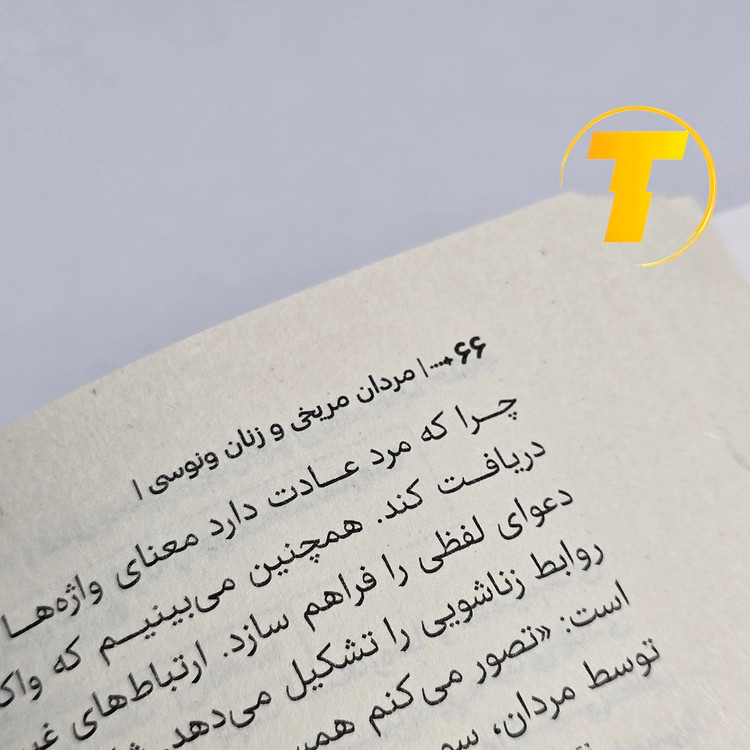 T
۶۶ ... | مردان مریخی و زنان ونوسی |
چـــرا که مرد عـــادت دارد معنای واژه‌هـــا
دریافـــت کند. همچنین می‌بینیـــم که
دعوای لفظی را فراهم سازد. ارتباط‌های
روابط زناشویی را تشکیل می‌دهد.
است: «تصور می‌کنم
توسط مردان،